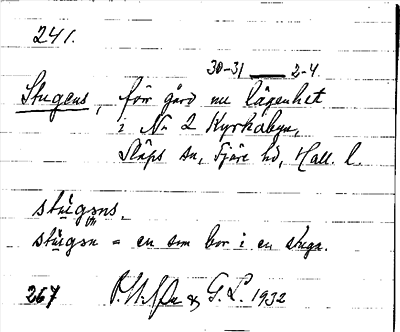 241.
30-31 — 2-4.
Stugens, förr gård nu lägenhet
i No 2 Kyrkobyn,
Släps sn, Fjäre hd, Hall. l.
stu̱gəns,
stu̱gən = en som bor i en stuga.
267 & G. L. 1932